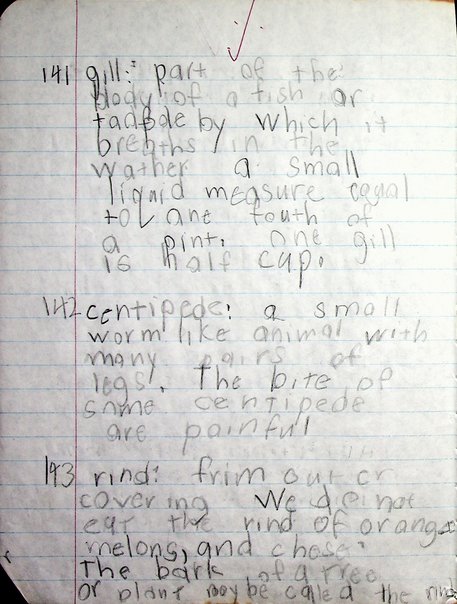 141 gill: part of the
body of a fish or
tadpole by which it
breaths in the
wather a small
liquid measure equal
to one fouth of
a pint. one gill
is half cup.
142 centipede: a small
worm like animal with
many pairs of
legs. The bite of
some centipede
are painful
143 rind: frim outer
covering We do not
eat the rind of orange
melons, and chese.
The bark of a tree
or plant maybe called the rind